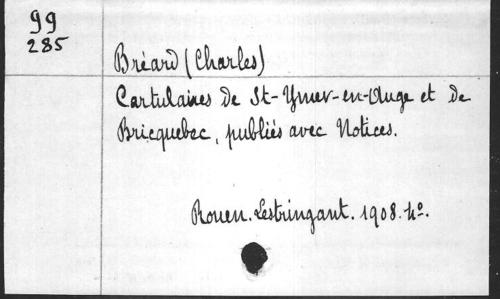 99
285
Bréard (Charles)
Cartulaires de St-Ymer-en-Auge et de
Bricquebec, publiés avec Notices.
Rouen. Lestringant. 1908. 4º.